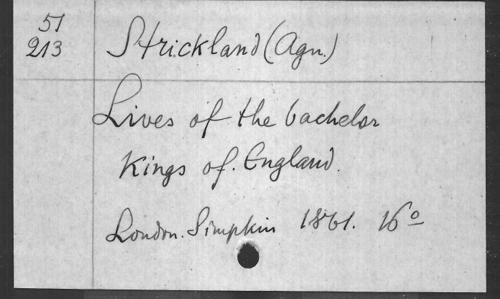 51
213
Strickland (Agn.)
Lives of the bachelor
Kings of. England.
London. Simpkin 1861. 16º